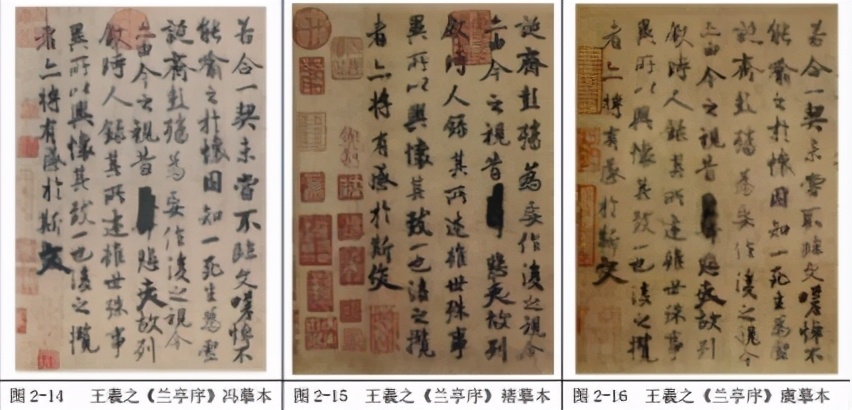 若合一契未嘗不臨文嗟悼不
能喻之於懷固知一死生為虛
誕齊彭殤為妄作後之視今
亦由今之視昔悲夫故列
敘時人錄其所述雖世殊事
異所以興懷其致一也後之攬
者亦將有感於斯文
图 2-14 王羲之《兰亭序》冯摹本
誕齊彭殤為妄作後之視今
亦由今之視昔悲夫故列
敘時人錄其所述雖世殊事
異所以興懷其致一也後之攬
者亦將有感於斯文
图 2-15 王羲之《兰亭序》褚摹本
若合一契未嘗不臨文嗟悼不
能喻之於懷固知一死生為虛
誕齊彭殤為妄作後之視今
亦由今之視昔悲夫故列
敘時人錄其所述雖世殊事
異所以興懷其致一也後之攬
者亦將有感於斯文
图 2-16 王羲之《兰亭序》虞摹本